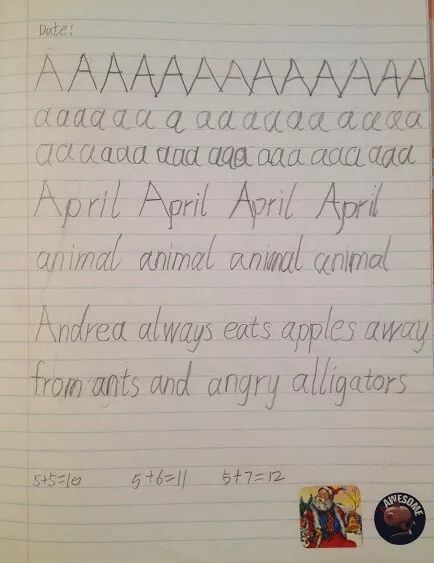 Date:
AAAAAAAAAAAAA
aaaa a a a a a a a a a a a a a
aa a a aaa aaa aaa aaa aaa aaa
April April April April
animal animal animal animal
Andrea always eats apples away
from ants and angry alligators
5+5=10 5+6=11 5+7=12
AWESOME